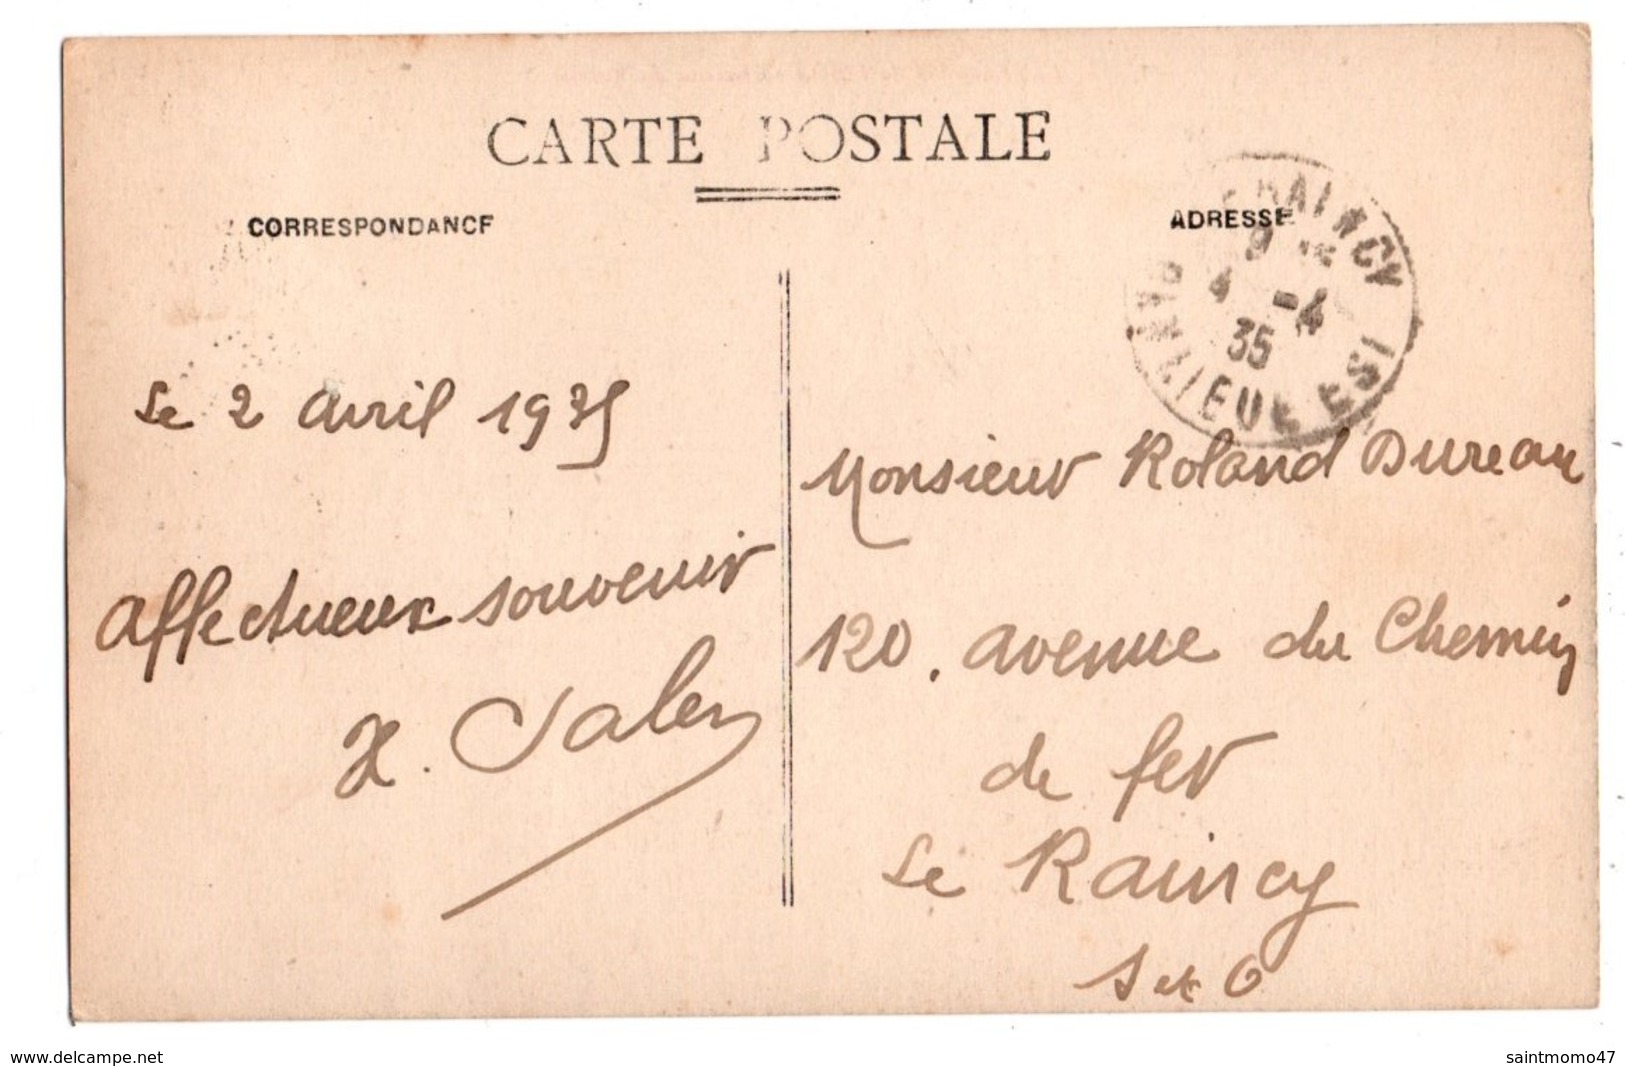 CARTE POSTALE
CORRESPONDANCE
ADRESSE
RAINCY
9
4 -4
35
BANLIEUE EST
Le 2 avril 1935
Affectueux souvenir
Monsieur Roland Dureau
120, avenue du Chemin
de fer
Le Raincy
S et O
www.delcampe.net
saintmomo47